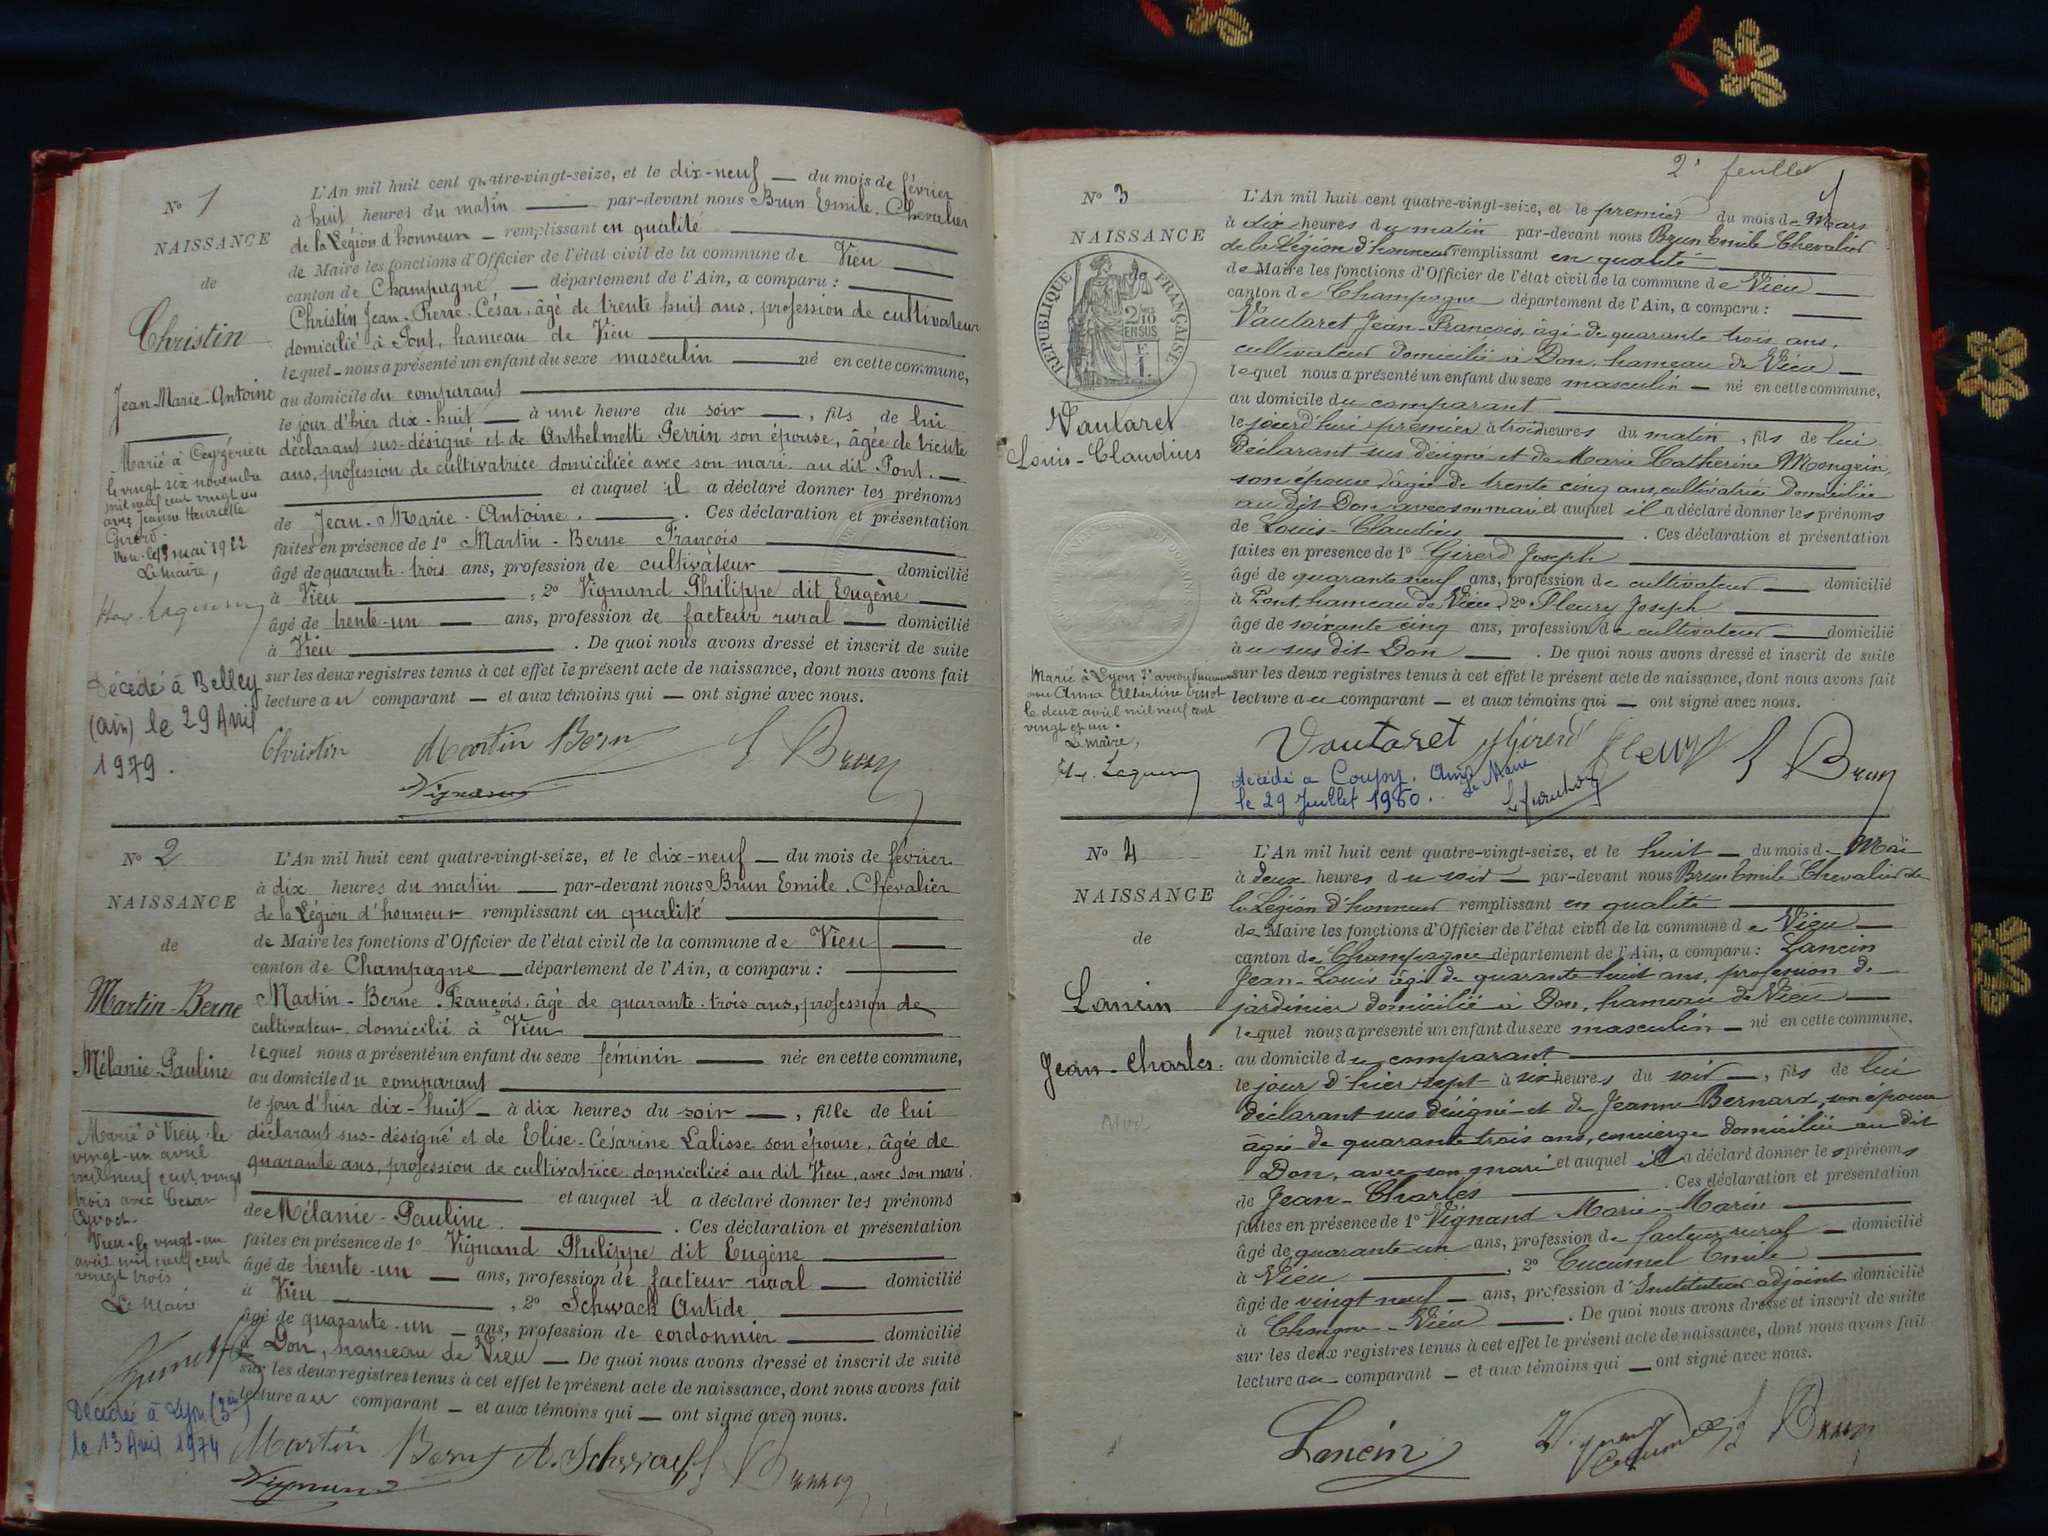 No 1
NAISSANCE
de
Christin
Jean-Marie-Antoine
Marié à Ceyzérieu
le vingt six novembre
mil neuf cent vingt un
avec Jeanne Henriette
Vieu le 13 mai 1922
Le Maire,
Décédé à Belley
(ain) le 29 Avril
1979.
L'An mil huit cent quatre-vingt-seize, et le dix-neuf du mois de février
à huit heures du matin par-devant nous Brun Emile. Chevalier
de la Légion d'honneur remplissant en qualité
de Maire les fonctions d'Officier de l'état civil de la commune de Vieu
canton de Champagne département de l'Ain, a comparu :
Christin Jean-Pierre-César, âgé de trente huit ans, profession de cultivateur
domicilié à Pont, hameau de Vieu
lequel nous a présenté un enfant du sexe masculin né en cette commune,
au domicile du comparant
le jour d'hier dix-huit à une heure du soir, fils de lui
déclarant sus-désigné et de Anthelmette Perrin son épouse, âgée de trente
ans, profession de cultivatrice domiciliée avec son mari au dit Pont.
et auquel il a déclaré donner les prénoms
de Jean-Marie-Antoine. Ces déclaration et présentation
faites en présence de 1º Martin-Berne François
âgé de quarante-trois ans, profession de cultivateur domicilié
à Vieu, 2º Vignand Philippe dit Eugène
âgé de trente-un ans, profession de facteur rural domicilié
à Vieu. De quoi nous avons dressé et inscrit de suite
sur les deux registres tenus à cet effet le présent acte de naissance, dont nous avons fait
lecture au comparant et aux témoins qui ont signé avec nous.
Christin Martin Bern E Brun
Vignand
No 2
NAISSANCE
de
Martin-Berne
Mélanie-Pauline
Marié à Vieu le
vingt-un avril
mil neuf cent vingt
trois avec César
Vieu le vingt-un
avril mil neuf cent
vingt trois
Le Maire
Décédée à Lyon (3e)
le 13 Avril 1974
L'An mil huit cent quatre-vingt-seize, et le dix-neuf du mois de février
à dix heures du matin par-devant nous Brun Emile. Chevalier
de la Légion d'honneur remplissant en qualité
de Maire les fonctions d'Officier de l'état civil de la commune de Vieu
canton de Champagne département de l'Ain, a comparu :
Martin-Berne François, âgé de quarante-trois ans, profession de
cultivateur domicilié à Vieu
lequel nous a présenté un enfant du sexe féminin née en cette commune,
au domicile du comparant
le jour d'hier dix-huit à dix heures du soir, fille de lui
déclarant sus-désigné et de Elise-Césarine Lalisse son épouse, âgée de
quarante ans, profession de cultivatrice domiciliée au dit Vieu, avec son mari.
et auquel il a déclaré donner les prénoms
de Mélanie-Pauline. Ces déclaration et présentation
faites en présence de 1º Vignand Philippe dit Eugène
âgé de trente-un ans, profession de facteur rural domicilié
à Vieu, 2º Schwack Antide
âgé de quarante-un ans, profession de cordonnier domicilié
à Don, hameau de Vieu De quoi nous avons dressé et inscrit de suite
sur les deux registres tenus à cet effet le présent acte de naissance, dont nous avons fait
lecture au comparant et aux témoins qui ont signé avec nous.
Martin Bern A. Schwack E Brun
Vignand
2e feuillet
No 3
NAISSANCE
RÉPUBLIQUE FRANÇAISE
2/10 EN SUS
Vautaret
Louis-Claudius
Marié à Lyon
avec Anna Albertine
le deux avril mil neuf cent
vingt et un.
Le Maire,
L'An mil huit cent quatre-vingt-seize, et le premier du mois de Mars
à dix heures du matin par-devant nous Brun Emile Chevalier
de la Légion d'honneur remplissant en qualité
de Maire les fonctions d'Officier de l'état civil de la commune de Vieu
canton de Champagne département de l'Ain, a comparu :
Vautaret Jean-François, âgé de quarante trois ans,
cultivateur domicilié à Don, hameau de Vieu
lequel nous a présenté un enfant du sexe masculin né en cette commune,
au domicile du comparant
le jourd'hui premier à trois heures du matin, fils de lui
déclarant sus désigné et de Marie Catherine Mongein,
son épouse âgée de trente cinq ans, cultivatrice domiciliée
au dit Don avec son mari et auquel il a déclaré donner les prénoms
de Louis-Claudius. Ces déclaration et présentation
faites en présence de 1º Girerd Joseph
âgé de quarante neuf ans, profession de cultivateur domicilié
à Pont, hameau de Vieu, 2º Fleury Joseph
âgé de soixante cinq ans, profession de cultivateur domicilié
à u sus dit Don. De quoi nous avons dressé et inscrit de suite
sur les deux registres tenus à cet effet le présent acte de naissance, dont nous avons fait
lecture au comparant et aux témoins qui ont signé avec nous.
Vautaret Girerd Fleury E Brun
décédé à Coupy. Ain
le 29 Juillet 1960. Le Maire
No 4
NAISSANCE
de
Lancin
Jean-Charles.
L'An mil huit cent quatre-vingt-seize, et le huit du mois de Mai
à deux heures du soir par-devant nous Brun Emile Chevalier de
la Légion d'honneur remplissant en qualité
de Maire les fonctions d'Officier de l'état civil de la commune de Vieu
canton de Champagne département de l'Ain, a comparu : Lancin
Jean-Louis âgé de quarante huit ans, profession de
jardinier domicilié à Don, hameau de Vieu
lequel nous a présenté un enfant du sexe masculin né en cette commune,
au domicile du comparant
le jour d'hier sept à six heures du soir, fils de lui
déclarant sus désigné et de Jeanne Bernard, son épouse
âgée de quarante trois ans, concierge domiciliée au dit
Don, avec son mari et auquel il a déclaré donner les prénoms
de Jean-Charles. Ces déclaration et présentation
faites en présence de 1º Vignand Marie-Marin
âgé de quarante un ans, profession de facteur rural domicilié
à Vieu, 2º Cucumel Emile
âgé de vingt neuf ans, profession d'Instituteur adjoint domicilié
à Chongne-Vieu. De quoi nous avons dressé et inscrit de suite
sur les deux registres tenus à cet effet le présent acte de naissance, dont nous avons fait
lecture au comparant et aux témoins qui ont signé avec nous.
Lancin Vignand E Brun